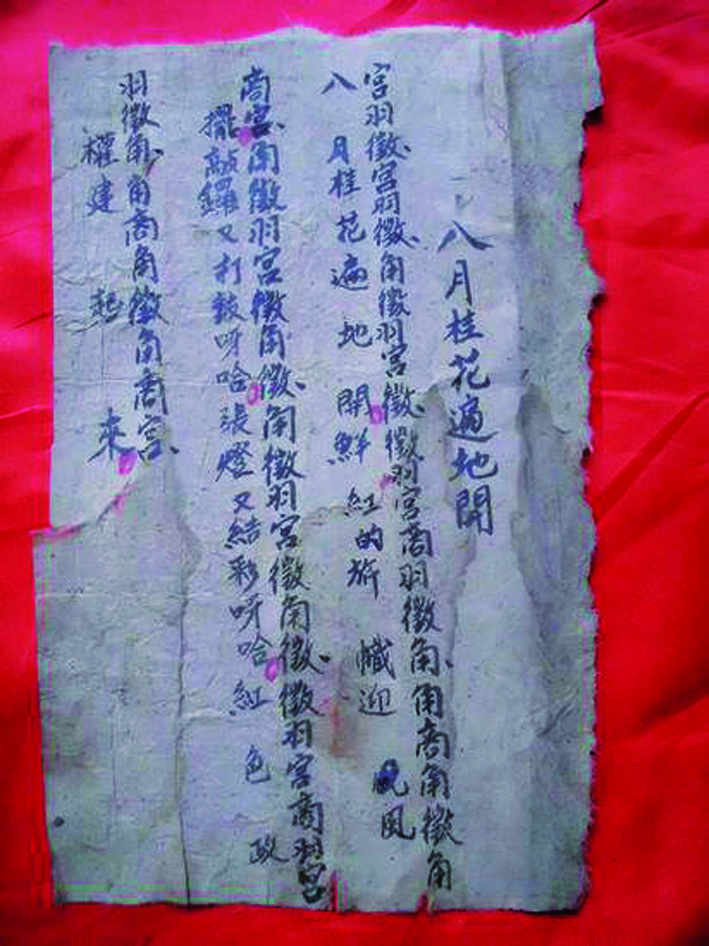 八月桂花遍地開
宮羽徵、宮羽徵、角徵羽宮徵、徵羽宮商羽徵角、角商角徵角
八月桂花遍地開鮮紅的旂幟迎風
商宮、角徵羽宮徵角徵、角徵羽宮徵角徵、徵羽宮商羽宮
擺敲鑼又打鼓呀哈張燈又結彩呀哈紅色政
羽徵角、角商角徵角商宮、
權建起來